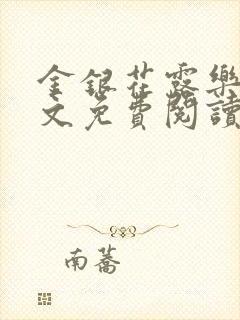 金銀花露樂
文免費閱讀
南蕎